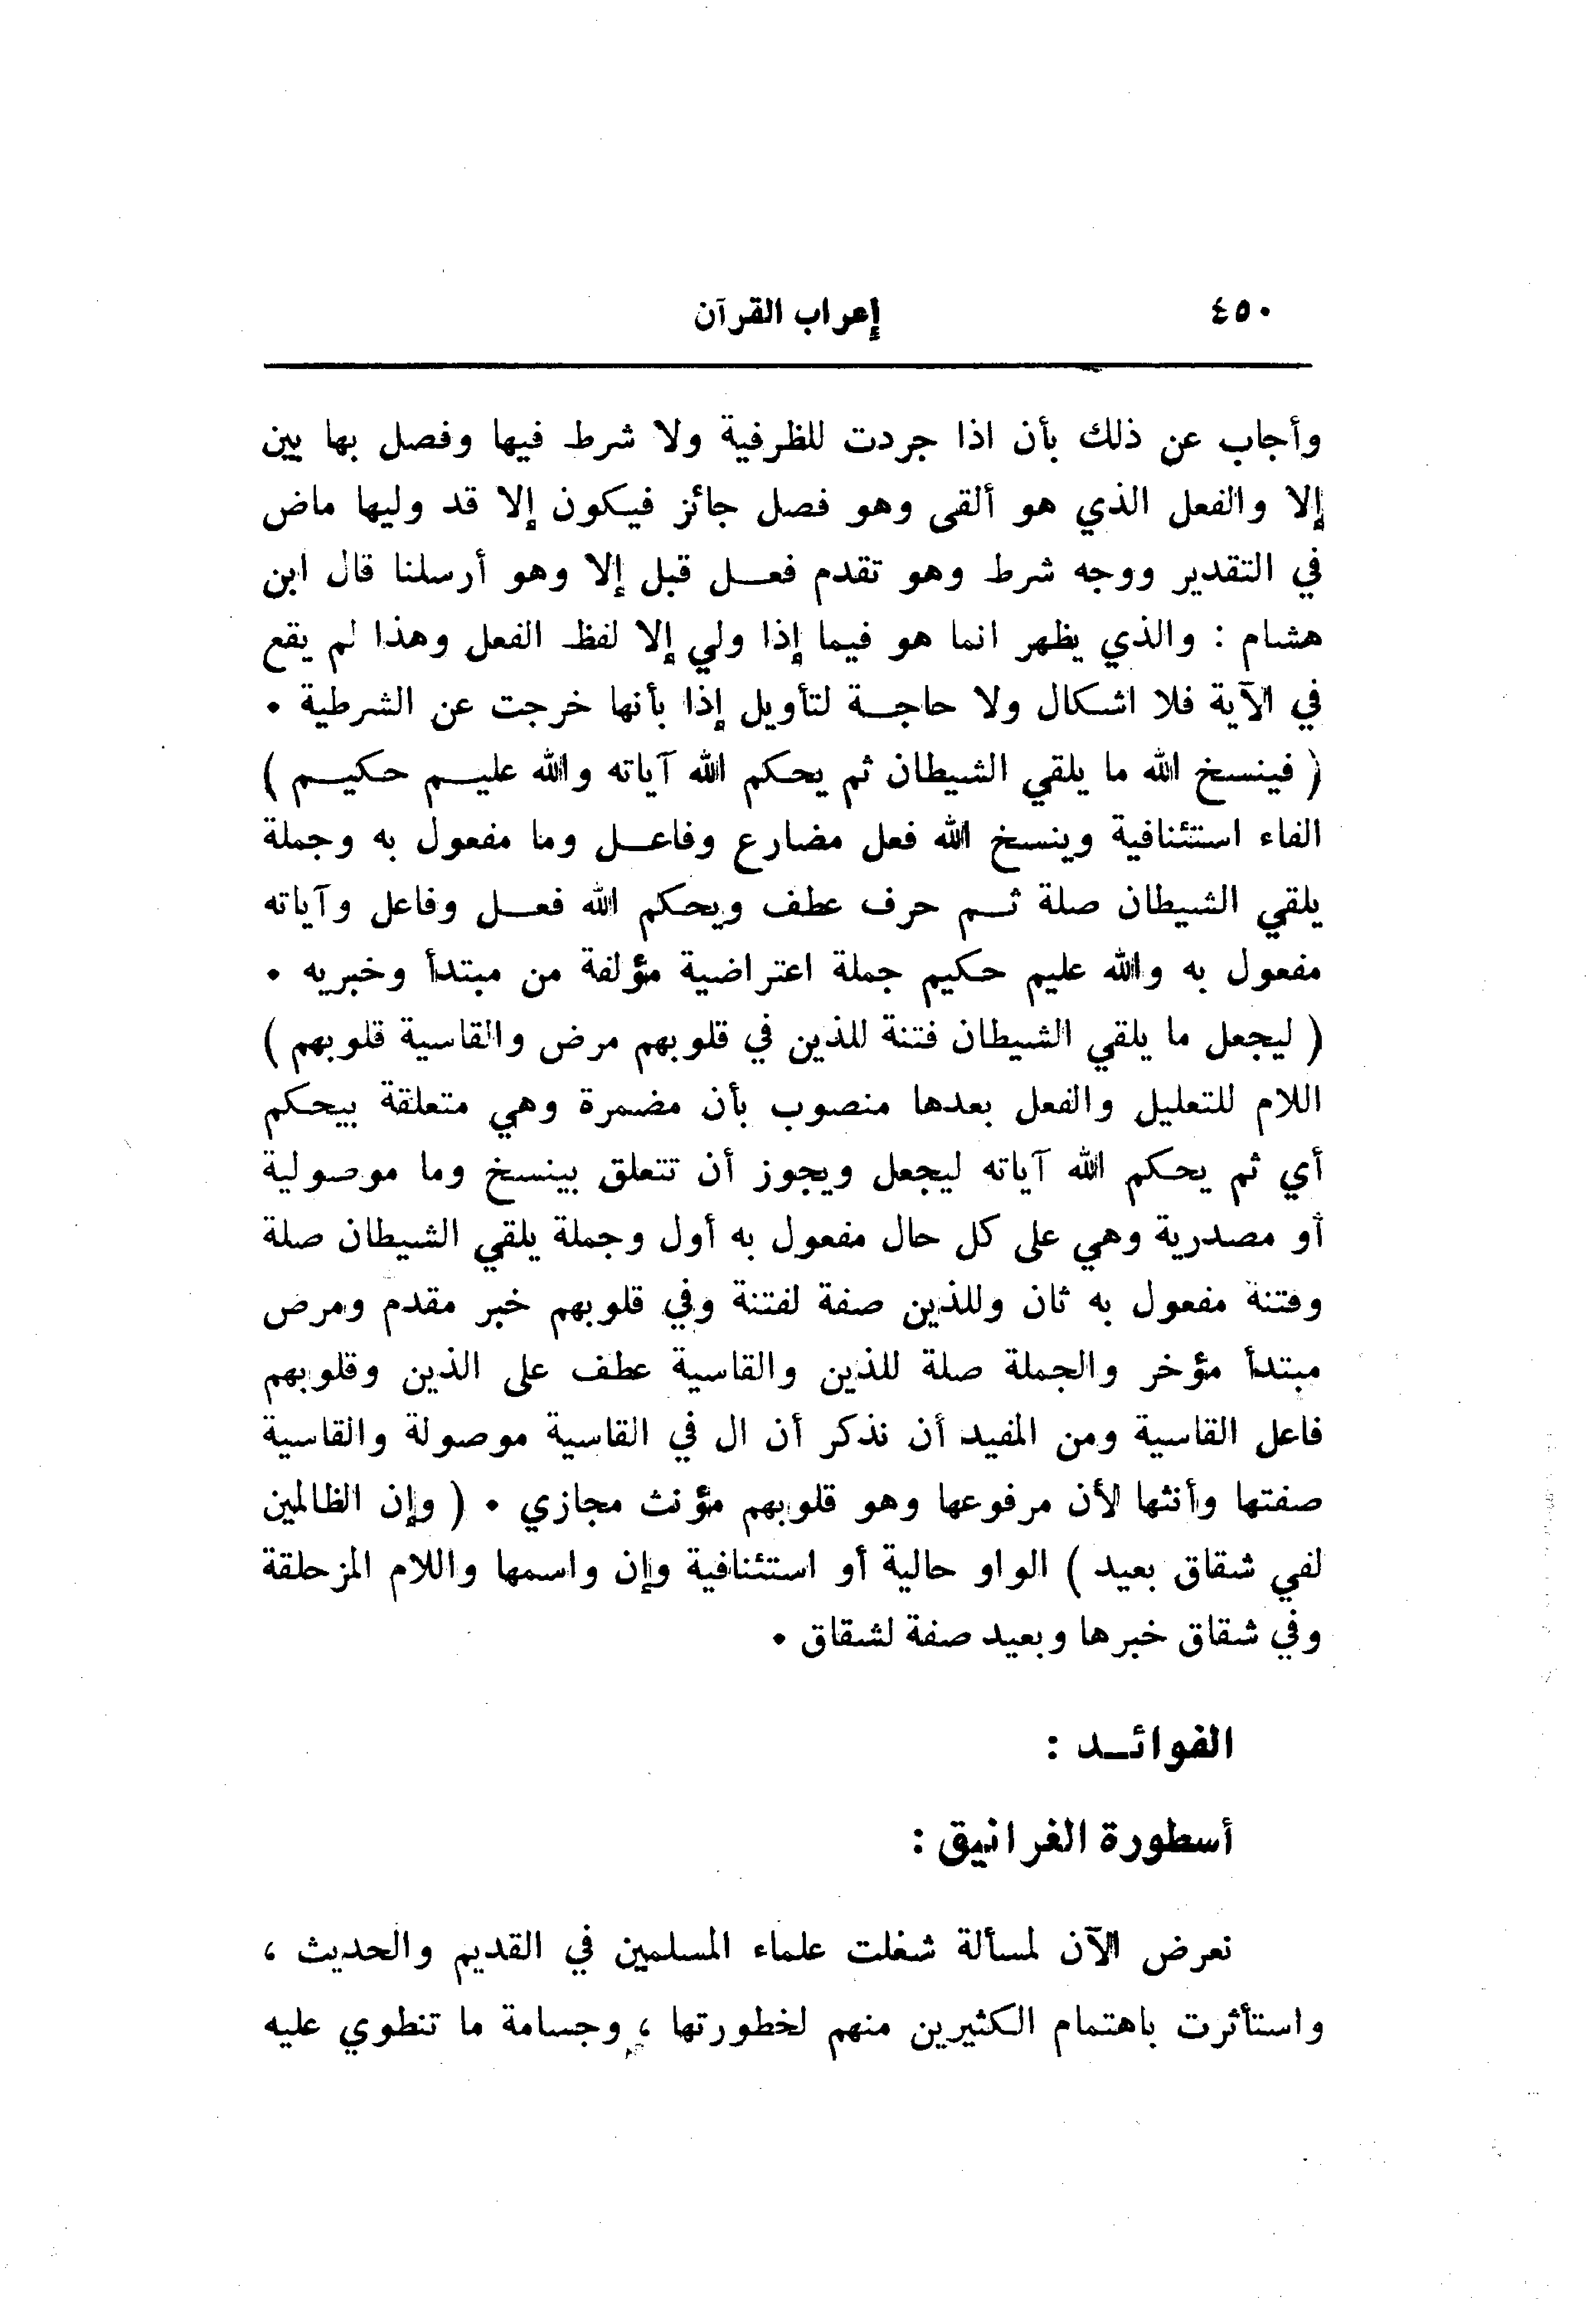 ٤٥٠ إعراب القرآن
وأجاب عن ذلك بأن اذا جردت للظرفية ولا شرط فيها وفصل بها بين
إلا والفعل الذي هو ألقى وهو فصل جائز فيكون إلا قد وليها ماض
في التقدير ووجه شرط وهو تقدم فعـــل قبل إلا وهو أرسلنا قال ابن
هشام : والذي يظهر انما هو فيما إذا ولي إلا لفظ الفعل وهذا لم يقع
في الآية فلا اشكال ولا حاجــة لتأويل إذا بأنها خرجت عن الشرطية ٠
( فينسخ الله ما يلقي الشيطان ثم يحكم الله آياته والله عليــم حكيــم )
الفاء استئنافية وينسخ الله فعل مضارع وفاعــل وما مفعول به وجملة
يلقي الشيطان صلة ثــم حرف عطف ويحكم الله فعــل وفاعل وآياته
مفعول به والله عليم حكيم جملة اعتراضية مؤلفة من مبتدأ وخبريه ٠
( ليجعل ما يلقي الشيطان فتنة للذين في قلوبهم مرض والقاسية قلوبهم )
اللام للتعليل والفعل بعدها منصوب بأن مضمرة وهي متعلقة بيحكم
أي ثم يحكم الله آياته ليجعل ويجوز أن تتعلق بينسخ وما موصولية
أو مصدرية وهي على كل حال مفعول به أول وجملة يلقي الشيطان صلة
وفتنة مفعول به ثان وللذين صفة لفتنة وفي قلوبهم خبر مقدم ومرض
مبتدأ مؤخر والجملة صلة للذين والقاسية عطف على الذين وقلوبهم
فاعل القاسية ومن المفيد أن نذكر أن ال في القاسية موصولة والقاسية
صفتها وأنثها لأن مرفوعها وهو قلوبهم مؤنث مجازي ٠ ( وإن الظالمين
لفي شقاق بعيد ) الواو حالية أو استئنافية وإن واسمها واللام المزحلقة
وفي شقاق خبرها وبعيد صفة لشقاق ٠
الفوائــد :
أسطورة الغرانيق :
نعرض الآن لمسألة شغلت علماء المسلمين في القديم والحديث ،
واستأثرت باهتمام الكثيرين منهم لخطورتها ، وجسامة ما تنطوي عليه